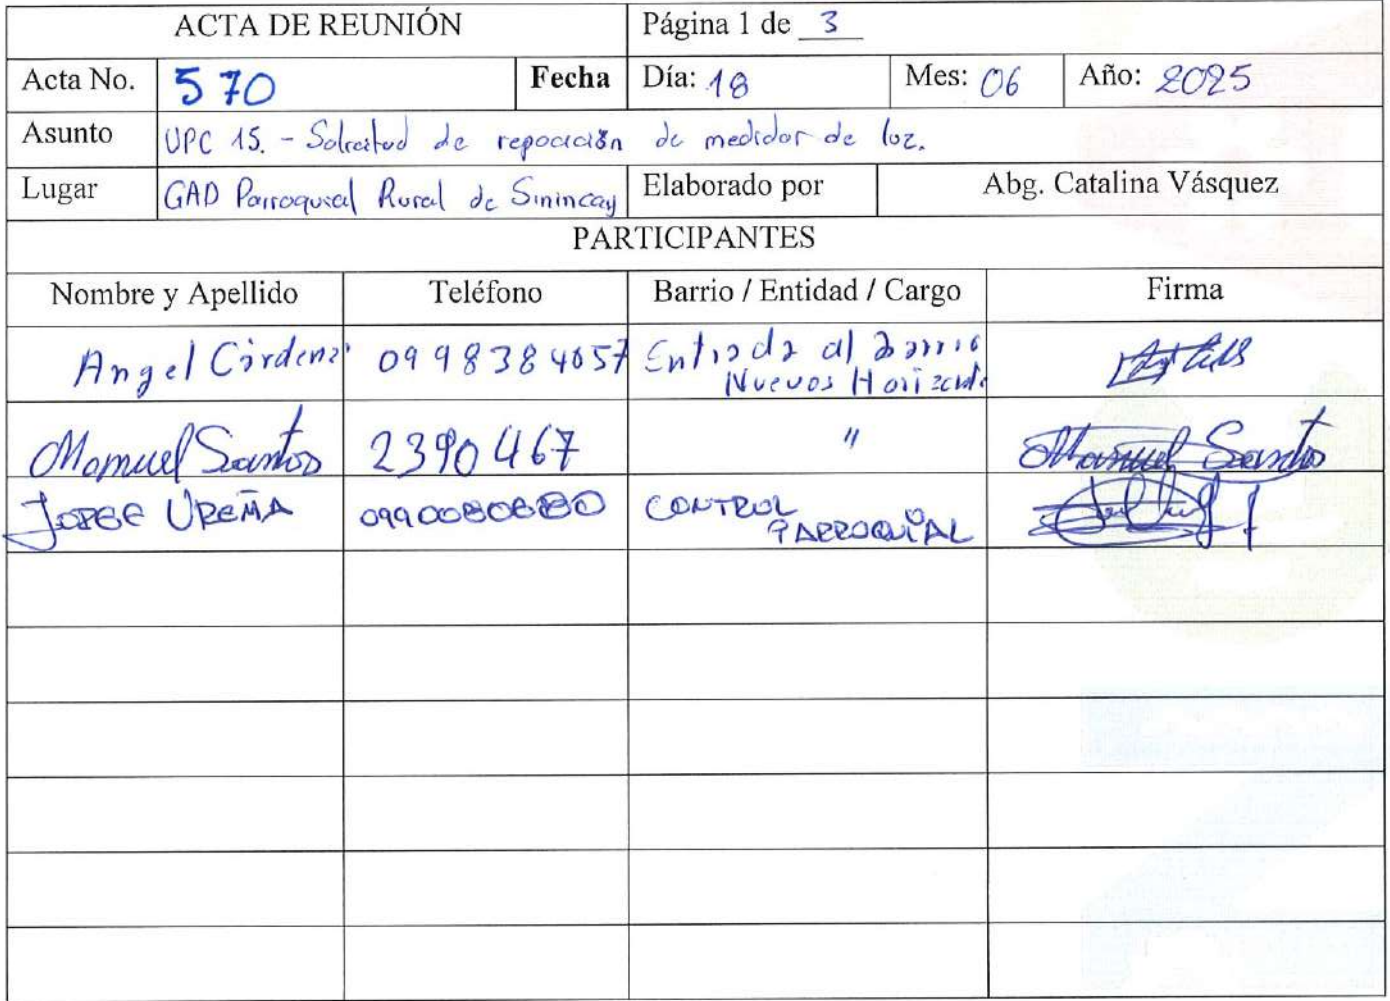 ACTA DE REUNIÓN Página 1 de 3
Acta No. 570 Fecha Día: 18 Mes: 06 Año: 2025
Asunto UPC 15. - Solicitud de reposición de medidor de luz.
Lugar GAD Parroquial Rural de Sinincay Elaborado por Abg. Catalina Vásquez
PARTICIPANTES
Nombre y Apellido Teléfono Barrio / Entidad / Cargo Firma
Angel Cárdenas 0998384057 Entrada al Barrio
Nuevos Horizontes
Manuel Santos 2390467 " Manuel Santos
JORGE UREÑA CONTROL
PARROQUIAL